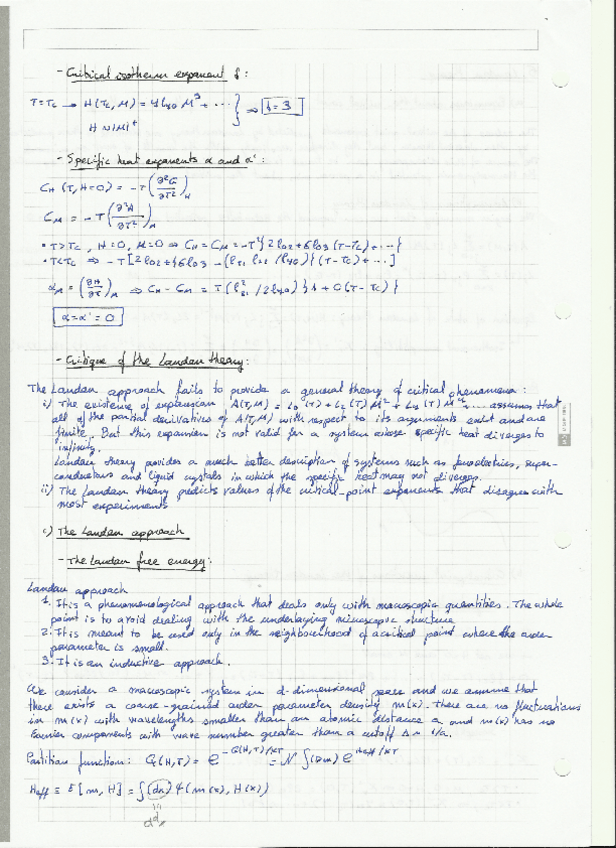 - Critical isotherm exponent δ:
T=Tc → H(Tc,M) = 4l40 M³ + ... } ⇒ δ=3
H ~ |M|^δ
- Specific heat exponents α and α':
CH (T, H=0) = -T (∂²G/∂T²)H
CM = -T (∂²A/∂T²)M
• T>Tc, H=0, M=0 ⇒ CH = CM = -T{2l02+6l03 (T-Tc)+...}
• T<Tc ⇒ -T[2l02+{6l03 - (l21 l22 / l40)} (T-Tc)+...]
αM = (∂H/∂T)M ⇒ CH - CM = T(l²21 /2l40) {1 + O(T-Tc)}
α=α'=0
- Critique of the Landau theory:
The Landau approach fails to provide a general theory of critical phenomena:
i) The existence of expansion A(T,M) = L0(T) + L2(T) M² + L4(T) M⁴ ... assumes that
all of the partial derivatives of A(T,M) with respect to its arguments exist and are
finite. But this expansion is not valid for a system whose specific heat diverges to
infinity.
Landau theory provides a much better description of systems such as ferroelectrics, super-
conductors and liquid crystals in which the specific heat may not diverge.
ii) The Landau theory predicts values of the critical-point exponents that disagree with
most experiments
c) The Landau approach
- The Landau free energy:
Landau approach
1. It is a phenomenological approach that deals only with macroscopic quantities. The whole
point is to avoid dealing with the underlaying microscopic structure
2. It is meant to be used only in the neighbourhood of a critical point where the order
parameter is small.
3. It is an inductive approach.
We consider a macroscopic system in d-dimensional space and we assume that
there exists a coarse-grained order parameter density m(x). There are no fluctuations
in m(x) with wavelengths smaller than an atomic distance a and m(x) has no
Fourier components with wave number greater than a cutoff Λ ~ 1/a.
Partition function: Q(H,T) = e^{-G(H,T)/kT} = N ∫(Dm) e^{-Heff/kT}
Heff ≡ E[m, H] = ∫(dx) Ψ(m(x), H(x))
d^d x